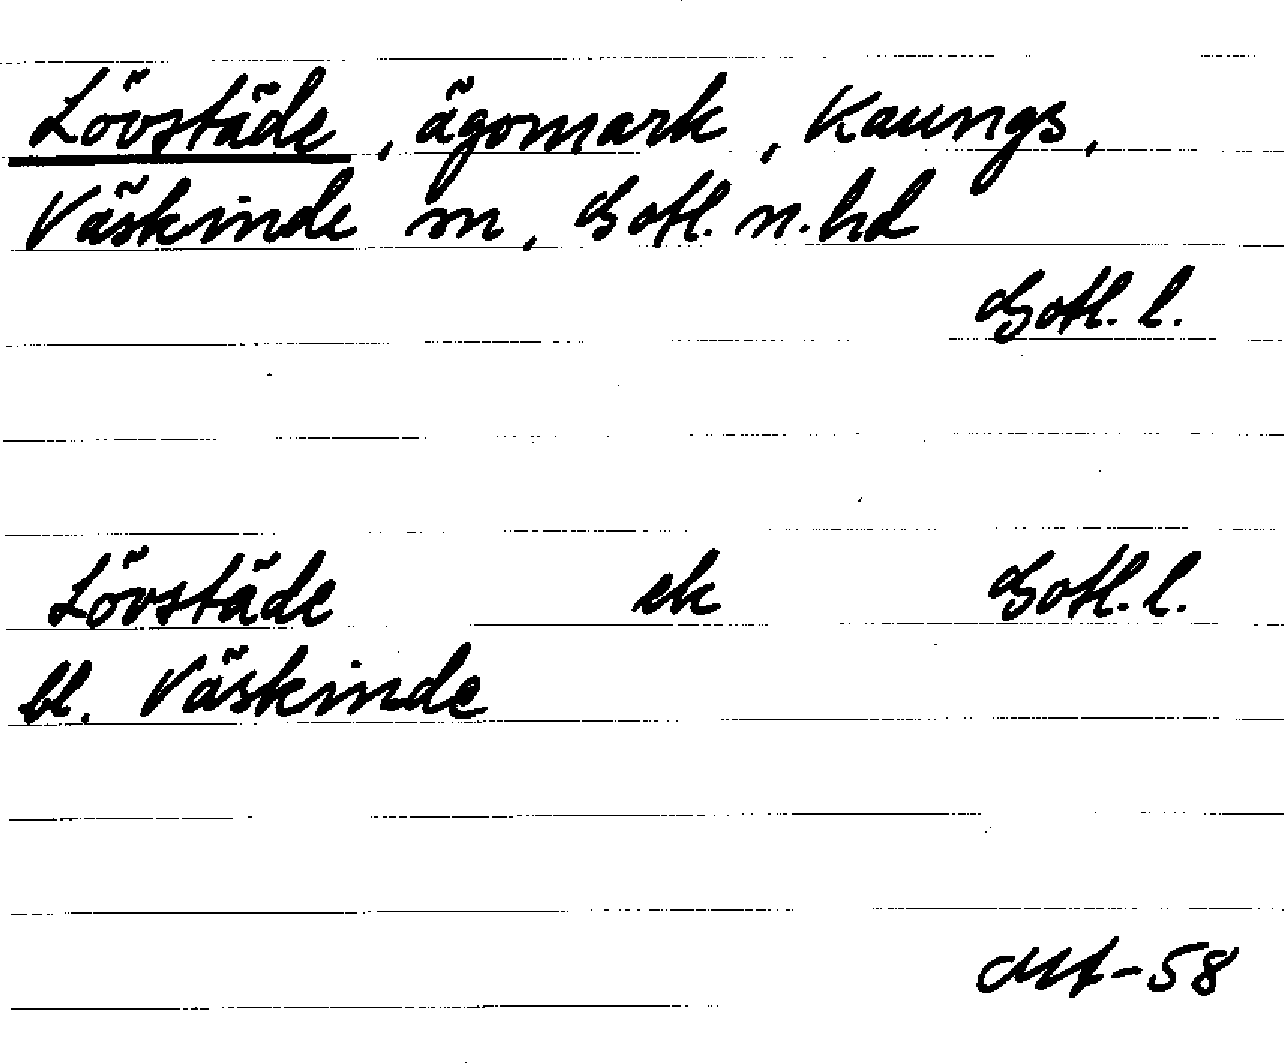 Lövstäde, ägomark, Kaungs,
Väskinde sn, Gotl. n. hd
Gotl. l.
Lövstäde ek Gotl. l.
bl. Väskinde
-58